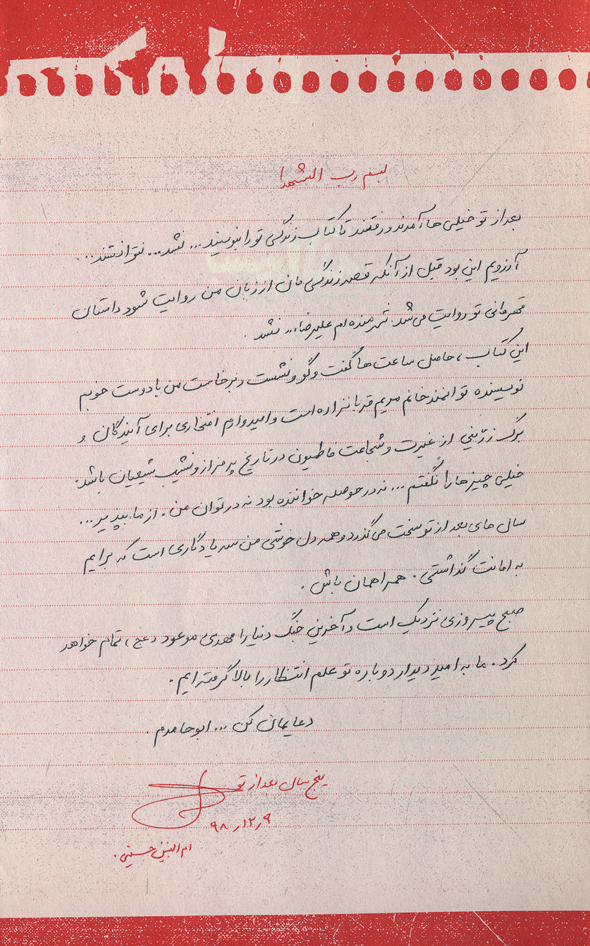 بسم رب الشهدا
بعد از تو خیلی ها آمدند و رفتند تا کتاب زندگی تو را بنویسند... نشد... نتوانستند...
آرزویم این بود قبل از آنکه قصه زندگی مان از زبان من روایت شود داستان
قهرمانی تو روایت می شد. شرمنده ام علیرضا... نشد.
این کتاب، حاصل ساعت ها گفت و گو و نشست و برخاست من با دوست خوبم
نویسنده توانمند خانم مریم قربانزاده است و امیدوارم افتخاری برای آیندگان و
برگ زرینی از غیرت و شجاعت فاطمیون در تاریخ پر فراز و نشیب شیعیان باشد.
خیلی چیزها را نگفتم... نه در حوصله خواننده بود نه در توان من. از ما بپذیر...
سال های بعد از تو سخت می گذرد و همه دل خوشی من سه یادگاری است که برایم
به امانت گذاشتی. همراهمان باش.
صبح پیروزی نزدیک است و آخرین جنگ دنیا را مهدی موعود (عج) تمام خواهد
کرد. ما به امید دیدار دوباره تو علم انتظار را بالا گرفته ایم.
دعایمان کن... ابوحامدم.
پنج سال بعد از تو
۹۸٫۱۲٫۹
ام البنین حسینی.